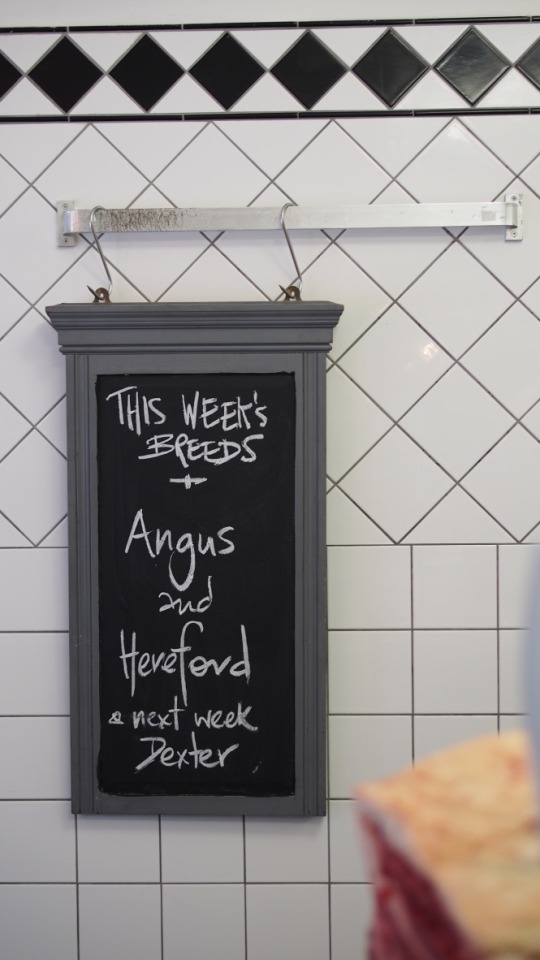 THIS WEEK'S
BREEDS
+
Angus
and
Hereford
& next week
Dexter